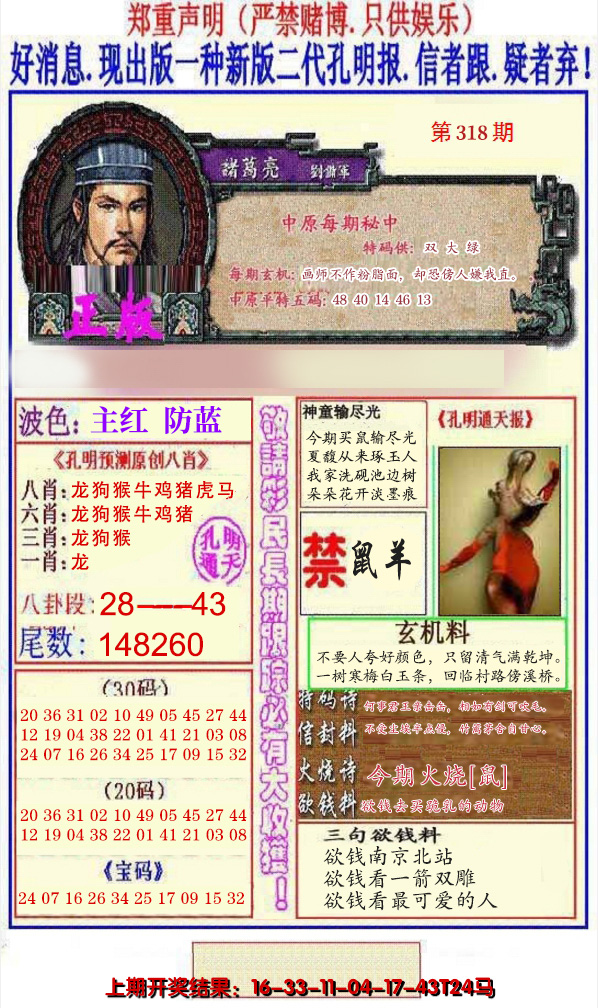 郑重声明（严禁赌博.只供娱乐）
好消息.现出版一种新版二代孔明报.信者跟.疑者弃!
第318期
諸葛亮 劉備軍
中原每期秘中
特码供: 双 大 绿
每期玄机: 画师不作粉脂面，却恐傍人嫌我直。
中原平特五码: 48 40 14 46 13
正版
波色: 主红 防蓝
《孔明预测原创八肖》
八肖: 龙狗猴牛鸡猪虎马
六肖: 龙狗猴牛鸡猪
三肖: 龙狗猴
一肖: 龙
孔明通天
八卦段: 28——43
尾数: 148260
（30码）
20 36 31 02 10 49 05 45 27 44
12 19 04 38 22 01 41 21 03 08
24 07 16 26 34 25 17 09 15 32
（20码）
20 36 31 02 10 49 05 45 27 44
12 19 04 38 22 01 41 21 03 08
《宝码》
24 07 16 26 34 25 17 09 15 32
敬請彩民長期跟踪必有大收獲！
神童输尽光
今期买鼠输尽光
夏馥从来琢玉人
我家洗砚池边树
朵朵花开淡墨痕
《孔明通天报》
禁 鼠羊
玄机料
不要人夸好颜色，只留清气满乾坤。
一树寒梅白玉条，回临村路傍溪桥。
特码诗 何事君王亲击缶，相如有剑可吹毛。
信封料 不受尘埃半点侵，竹篱茅舍自甘心。
火烧诗 今期火烧[鼠]
欲钱料 欲钱去买骁乳的动物
三句欲钱料
欲钱南京北站
欲钱看一箭双雕
欲钱看最可爱的人
上期开奖结果：16-33-11-04-17-43T24马